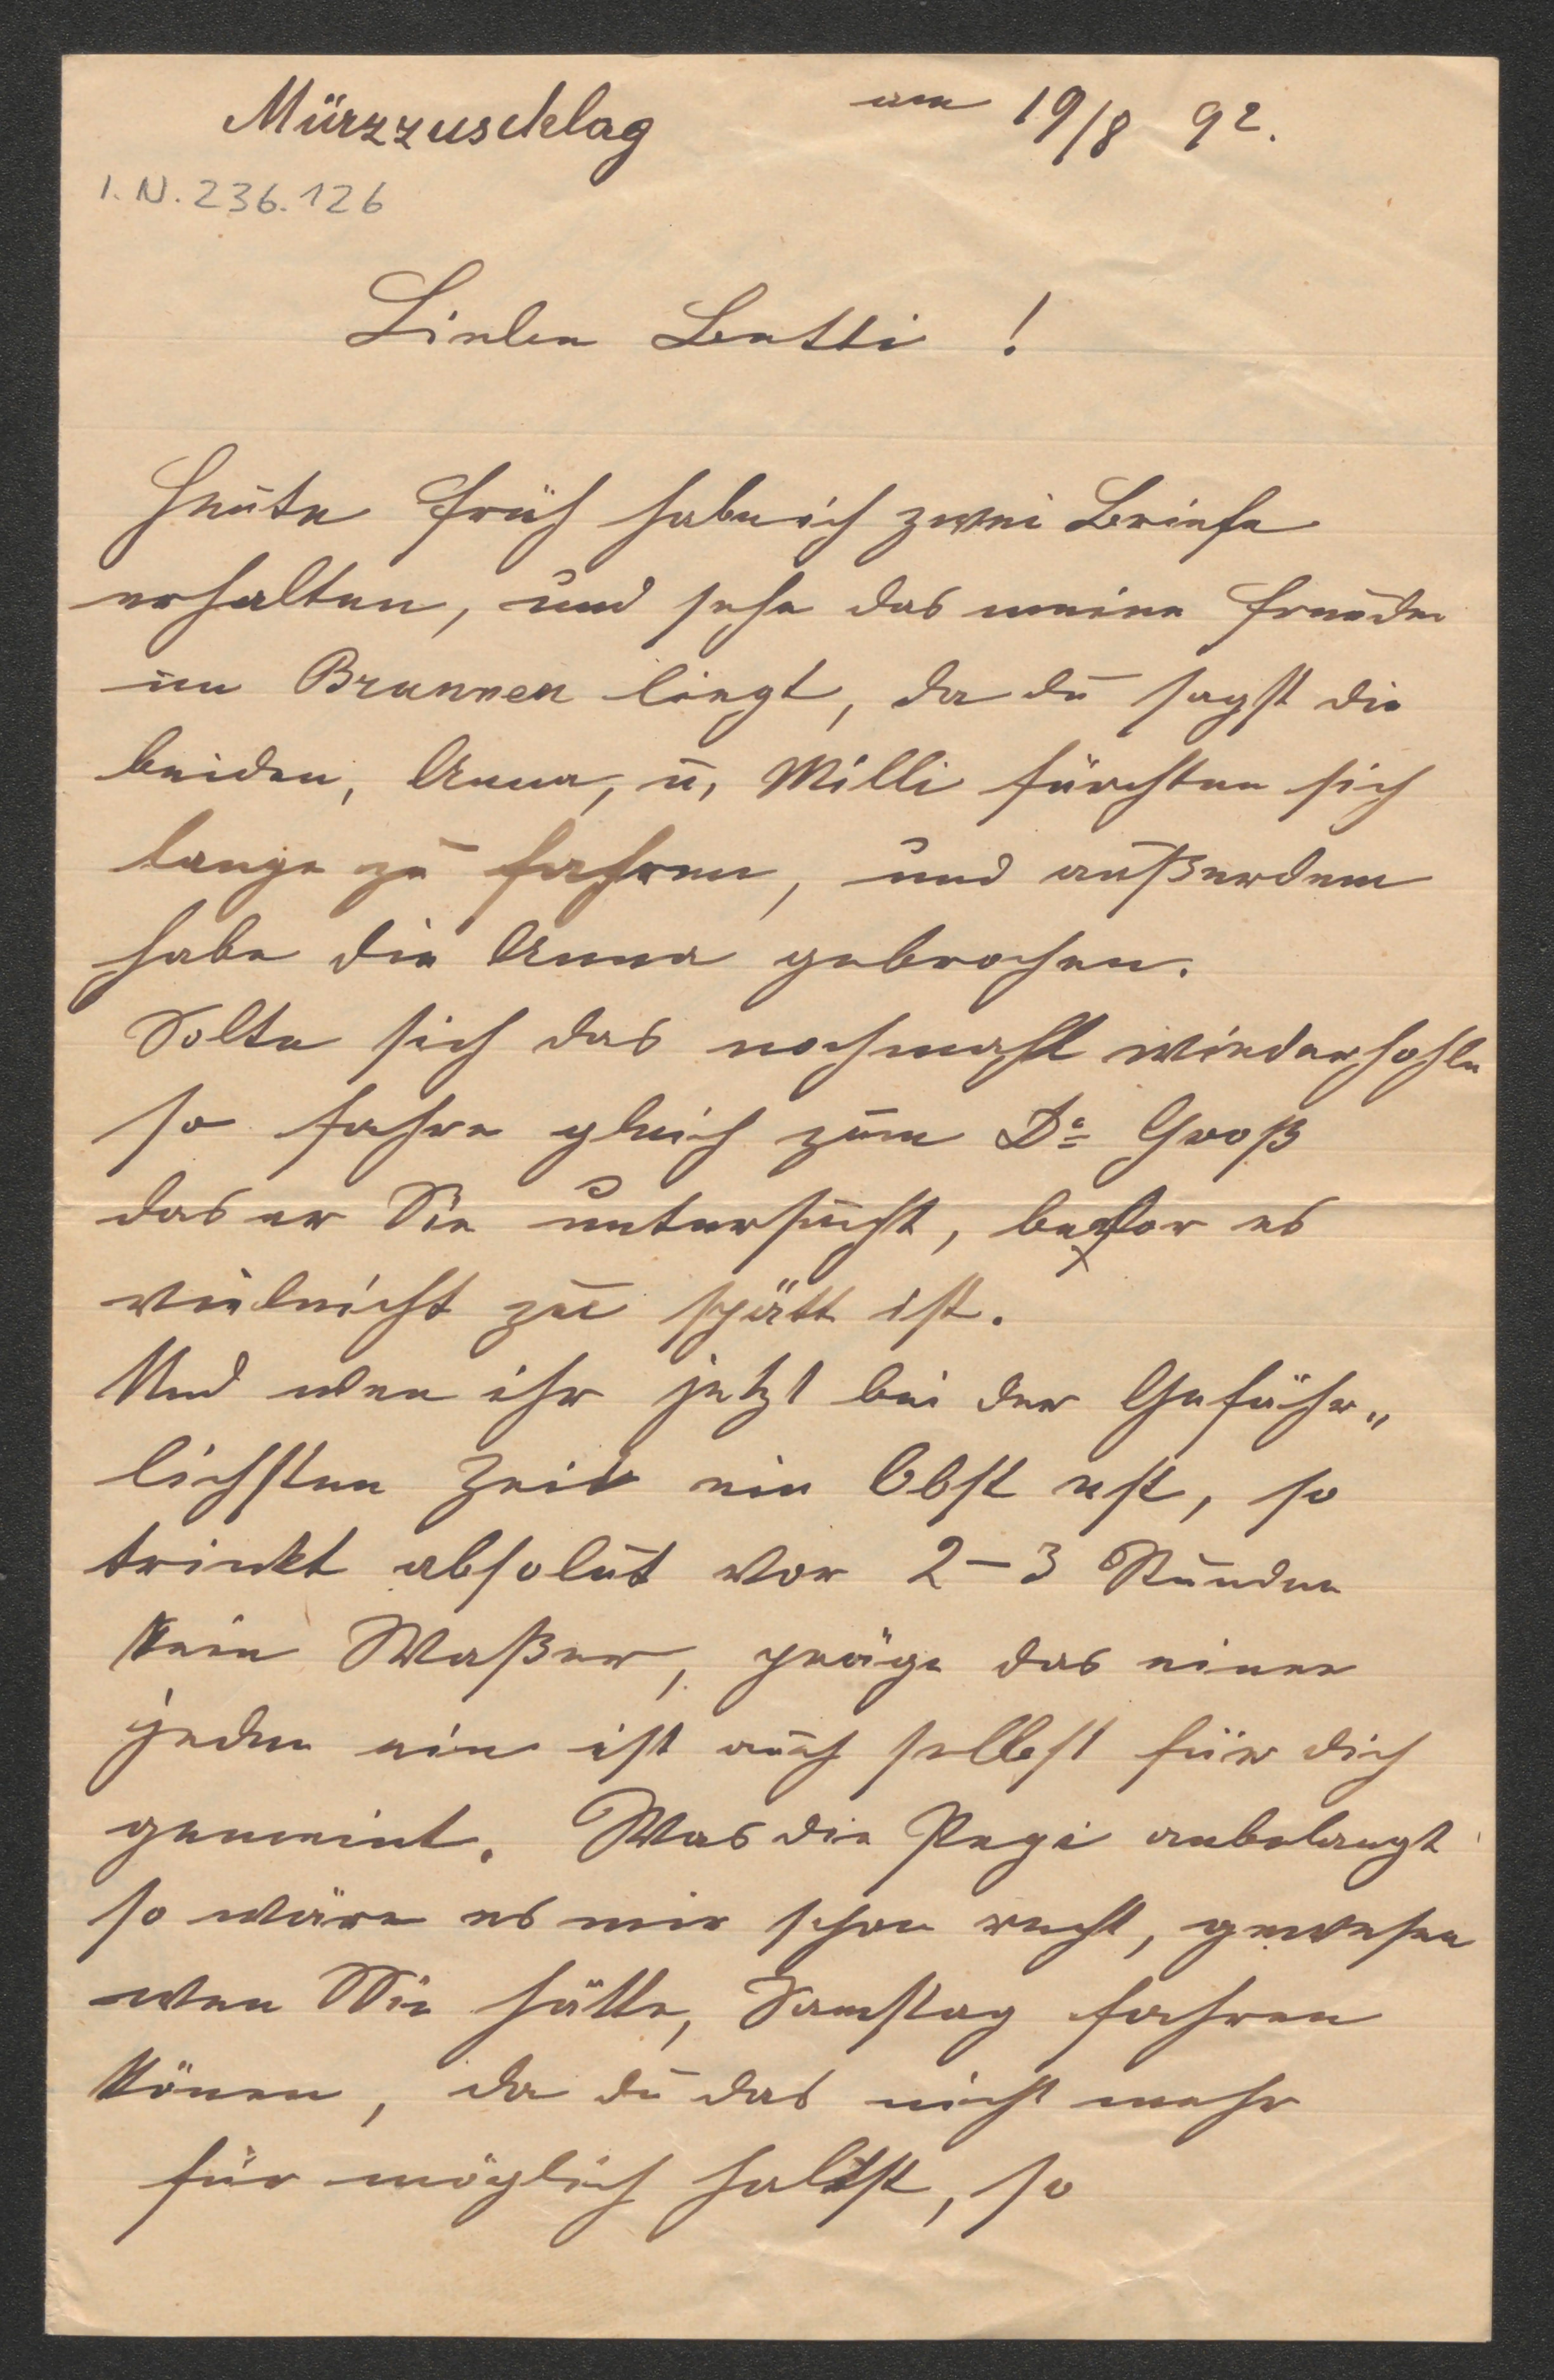 Mürzzuschlag am 19/8 92.
I. N. 236.126
Liebe Betti !
Heute Früh habe ich zwei Briefe
erhalten, und sehe das meine Freude
im Brunnen liegt, da du sagst die
beiden, Anna, u, Milli fürchten sich
lange zu fahren, und außerdem
habe die Anna gebrochen.
Solte sich das nochmahl wiederhohle
so fahre gleich zum Dr Groß
das er Sie untersucht, befor es
vieleicht zu spätt ist.
Und wen ihr jetzt bei der Gefähr„
lichsten Zeit ein Obst est, so
trinkt absolut vor 2–3 Stunden
kein Waßer, präge das einen
jeden ein ist auch sellbst für dich
gemeint. Was die Pepi anbelangt
so wäre es mir schon recht, gewesen
wen Sie hätte, Samstag fahren
könen, da du das nicht mehr
für möglich haltst, so